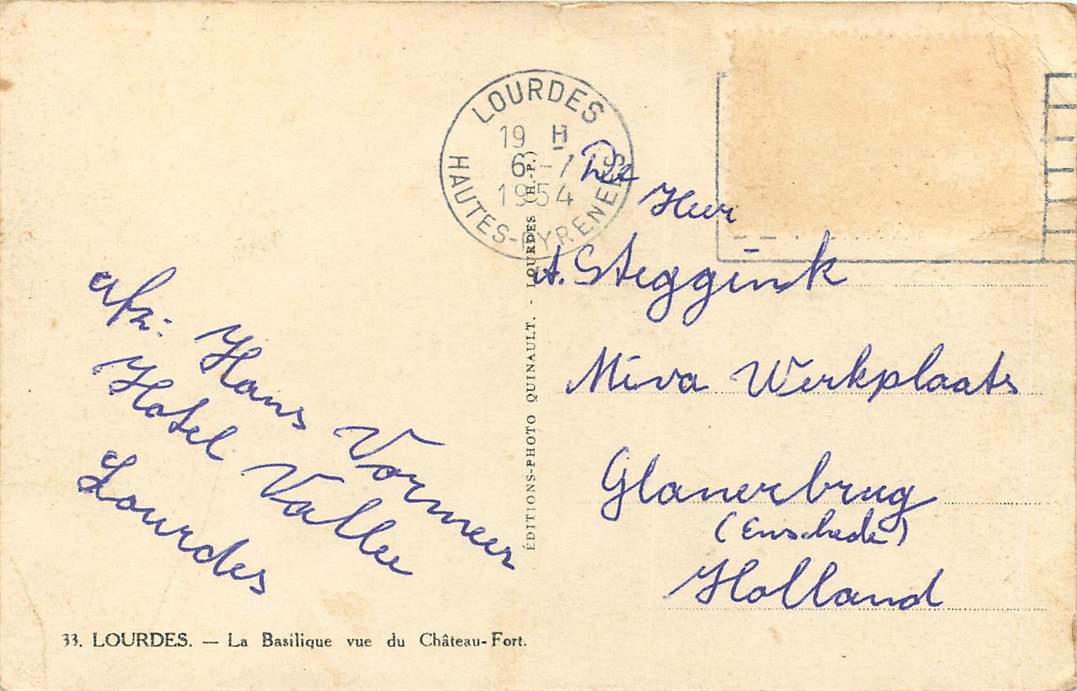 LOURDES
19 H
6-7
1954
HAUTES-PYRENEES
De
Heer
A. Steggink
Miva Werkplaats
Glanerbrug
(Enschede)
Holland
afz: Hans Vormeer
Hotel Vallee
Lourdes
ÉDITIONS-PHOTO QUINAULT. - LOURDES (H.-P.)
33. LOURDES. — La Basilique vue du Château-Fort.